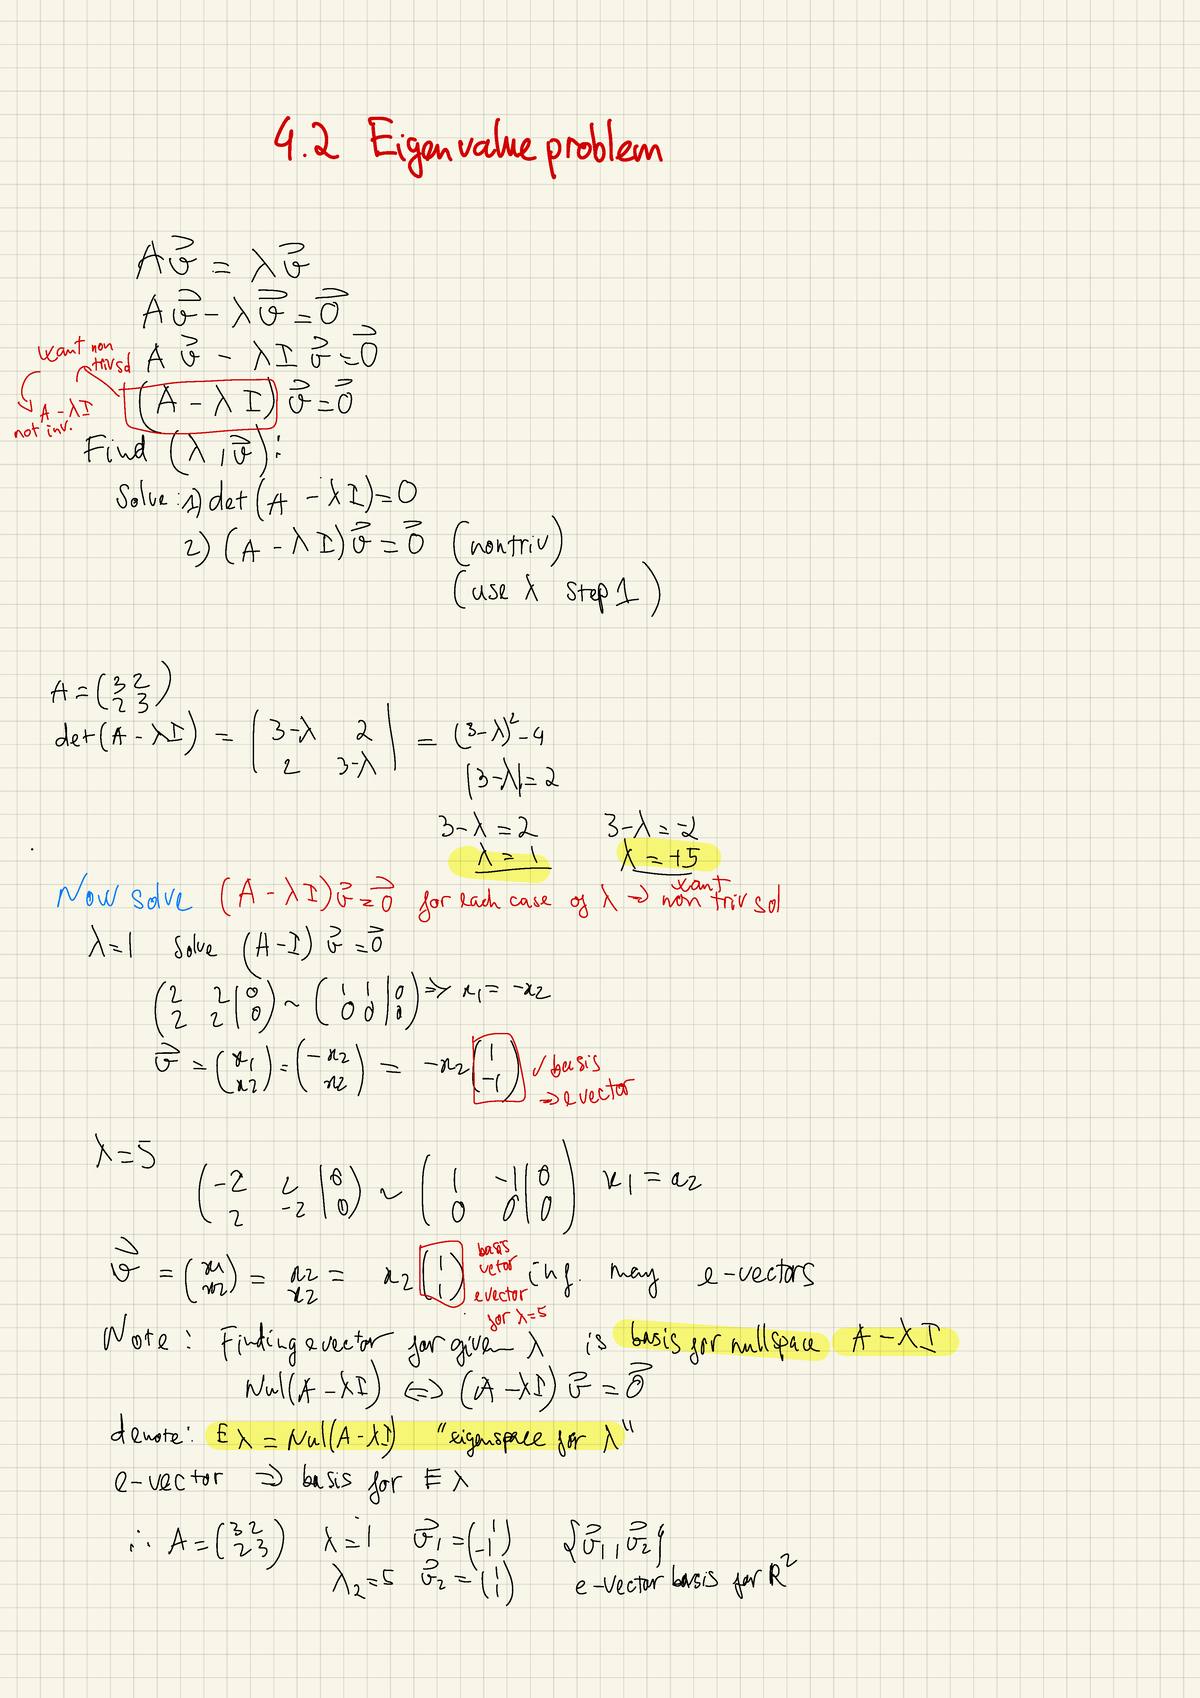 4.2 Eigenvalue problem
Av⃗ = λv⃗
Av⃗ - λv⃗ = 0⃗
Av⃗ - λIv⃗ = 0⃗
want non
trivsol
(A - λI)v⃗ = 0⃗
A - λI
not inv.
Find (λ, v⃗):
Solve: 1) det(A - λI) = 0
2) (A - λI)v⃗ = 0⃗ (nontriv)
(use λ step 1)
A = (3 2
2 3)
det(A - λI) = |3-λ 2
2 3-λ| = (3-λ)² - 4
|3-λ| = 2
3-λ = 2 3-λ = -2
λ = 1 λ = +5
Now solve (A - λI)v⃗ = 0⃗ for each case of λ → want non triv sol
λ=1 solve (A - I)v⃗ = 0⃗
(2 2 | 0
2 2 | 0) ~ (1 1 | 0
0 0 | 0) ⇒ x1 = -x2
v⃗ = (x1
x2) = (-x2
x2) = -x2 (1
-1) ✓ basis
⇒ evector
λ=5
(-2 2 | 0
2 -2 | 0) ~ (1 -1 | 0
0 0 | 0) x1 = x2
v⃗ = (x1
x2) = x2
x2 = x2 (1
1) basis
vetor
evector
for λ=5
inf. may e-vectors
Note: Finding evector for given λ is basis for nullspace A - λI
Nul(A - λI) ⇔ (A - λI)v⃗ = 0⃗
denote: Eλ = Nul(A - λI) "eigenspace for λ"
e-vector ⇒ basis for Eλ
∴ A = (3 2
2 3) λ=1 v⃗1 = (1
-1) {v⃗1, v⃗2}
λ2=5 v⃗2 = (1
1) e-vector basis for R²